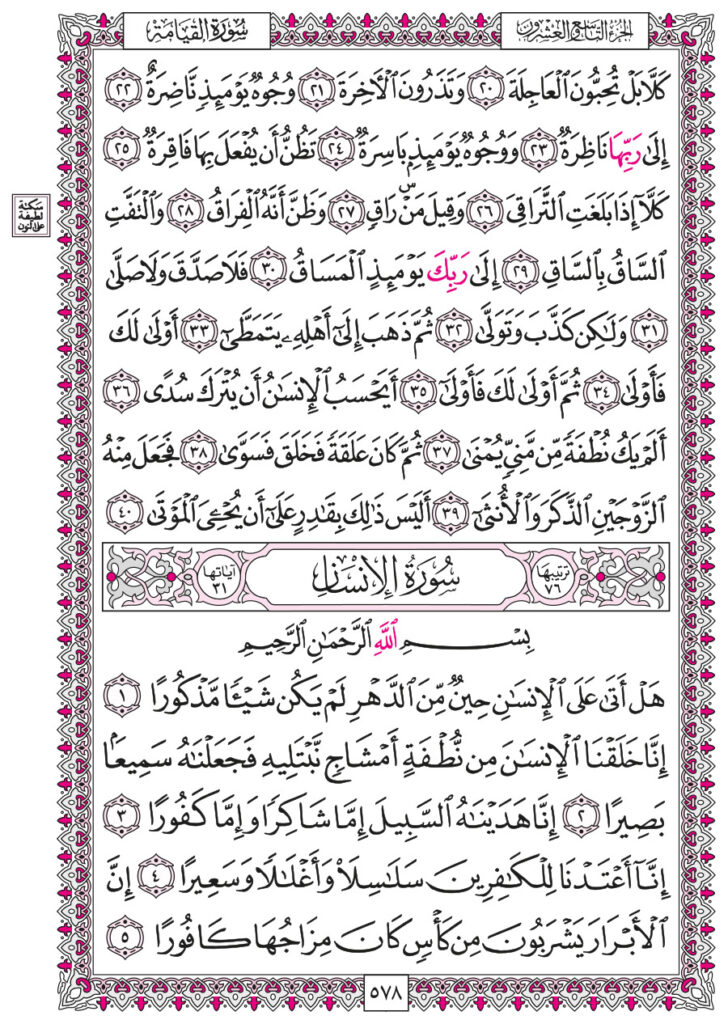 الجزء التاسع والعشرون
سُورَةُ القِيَامَة
كَلَّا بَلْ تُحِبُّونَ ٱلْعَاجِلَةَ ٢٠ وَتَذَرُونَ ٱلْأٓخِرَةَ ٢١ وُجُوهٌ يَوْمَئِذٖ نَّاضِرَةٌ ٢٢
إِلَىٰ رَبِّهَا نَاظِرَةٞ ٢٣ وَوُجُوهٞ يَوْمَئِذِۭ بَاسِرَةٞ ٢٤ تَظُنُّ أَن يُفْعَلَ بِهَا فَاقِرَةٞ ٢٥
كَلَّآ إِذَا بَلَغَتِ ٱلتَّرَاقِيَ ٢٦ وَقِيلَ مَنْۜ رَاقٖ ٢٧ وَظَنَّ أَنَّهُ ٱلْفِرَاقُ ٢٨ وَٱلْتَفَّتِ
سكتة
لطيفة
على النون
ٱلسَّاقُ بِٱلسَّاقِ ٢٩ إِلَىٰ رَبِّكَ يَوْمَئِذٍ ٱلْمَسَاقُ ٣٠ فَلَا صَدَّقَ وَلَا صَلَّىٰ
٣١ وَلَٰكِن كَذَّبَ وَتَوَلَّىٰ ٣٢ ثُمَّ ذَهَبَ إِلَىٰٓ أَهْلِهِۦ يَتَمَطَّىٰٓ ٣٣ أَوْلَىٰ لَكَ
فَأَوْلَىٰ ٣٤ ثُمَّ أَوْلَىٰ لَكَ فَأَوْلَىٰٓ ٣٥ أَيَحْسَبُ ٱلْإِنسَٰنُ أَن يُتْرَكَ سُدًى ٣٦
أَلَمْ يَكُ نُطْفَةٗ مِّن مَّنِيّٖ يُمْنَىٰ ٣٧ ثُمَّ كَانَ عَلَقَةٗ فَخَلَقَ فَسَوَّىٰ ٣٨ فَجَعَلَ مِنْهُ
ٱلزَّوْجَيْنِ ٱلذَّكَرَ وَٱلْأُنثَىٰٓ ٣٩ أَلَيْسَ ذَٰلِكَ بِقَٰدِرٍ عَلَىٰٓ أَن يُحْـِۧيَ ٱلْمَوْتَىٰ ٤٠
ترتيبها ٧٦ سُورَةُ الإِنسَانِ آياتها ٣١
بِسْمِ ٱللَّهِ ٱلرَّحْمَٰنِ ٱلرَّحِيمِ
هَلْ أَتَىٰ عَلَى ٱلْإِنسَٰنِ حِينٞ مِّنَ ٱلدَّهْرِ لَمْ يَكُن شَيْـٔٗا مَّذْكُورًا ١
إِنَّا خَلَقْنَا ٱلْإِنسَٰنَ مِن نُّطْفَةٍ أَمْشَاجٖ نَّبْتَلِيهِ فَجَعَلْنَٰهُ سَمِيعَۢا
بَصِيرًا ٢ إِنَّا هَدَيْنَٰهُ ٱلسَّبِيلَ إِمَّا شَاكِرٗا وَإِمَّا كَفُورًا ٣
إِنَّآ أَعْتَدْنَا لِلْكَٰفِرِينَ سَلَٰسِلَا۟ وَأَغْلَٰلٗا وَسَعِيرًا ٤ إِنَّ
ٱلْأَبْرَارَ يَشْرَبُونَ مِن كَأْسٖ كَانَ مِزَاجُهَا كَافُورًا ٥
٥٧٨